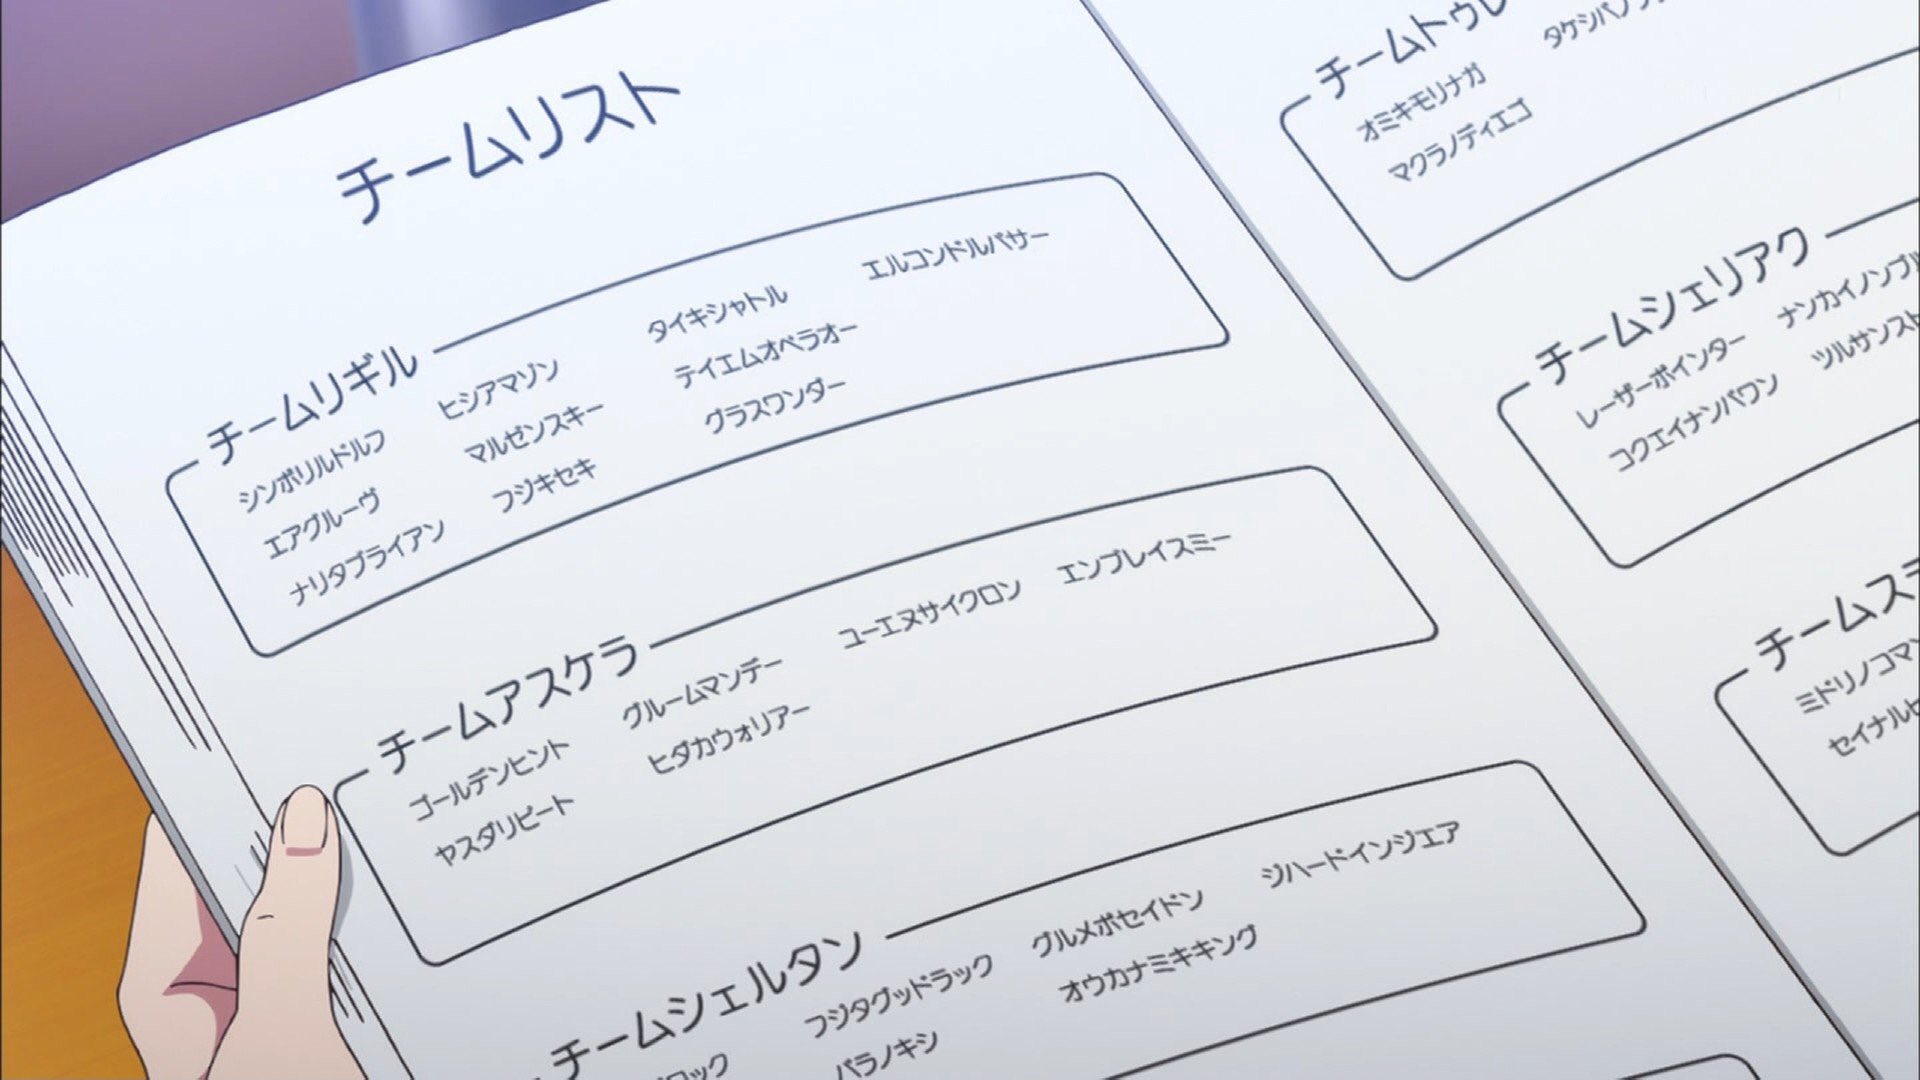 チームリスト
チームリギル
シンボリルドルフ
エアグルーヴ
ナリタブライアン
ヒシアマゾン
マルゼンスキー
フジキセキ
タイキシャトル
テイエムオペラオー
グラスワンダー
エルコンドルパサー
チームアスケラ
ゴールデンヒント
ヤスダリピート
グルームマンデー
ヒダカウォリアー
ユーエヌサイクロン
エンブレイスミー
チームシェルタン
ロック
フジタグッドラック
パラノキシ
グルメポセイドン
オウカナミキキング
ジハードインジエア
チームトゥレ
オミキモリナガ
マクラノディエゴ
タケシバノ
チームシェリアク
レーザーポインター
コクエイナンバワン
ナンカイノンブル
ツルサンスト
チームス
ミドリノコマ
セイナル